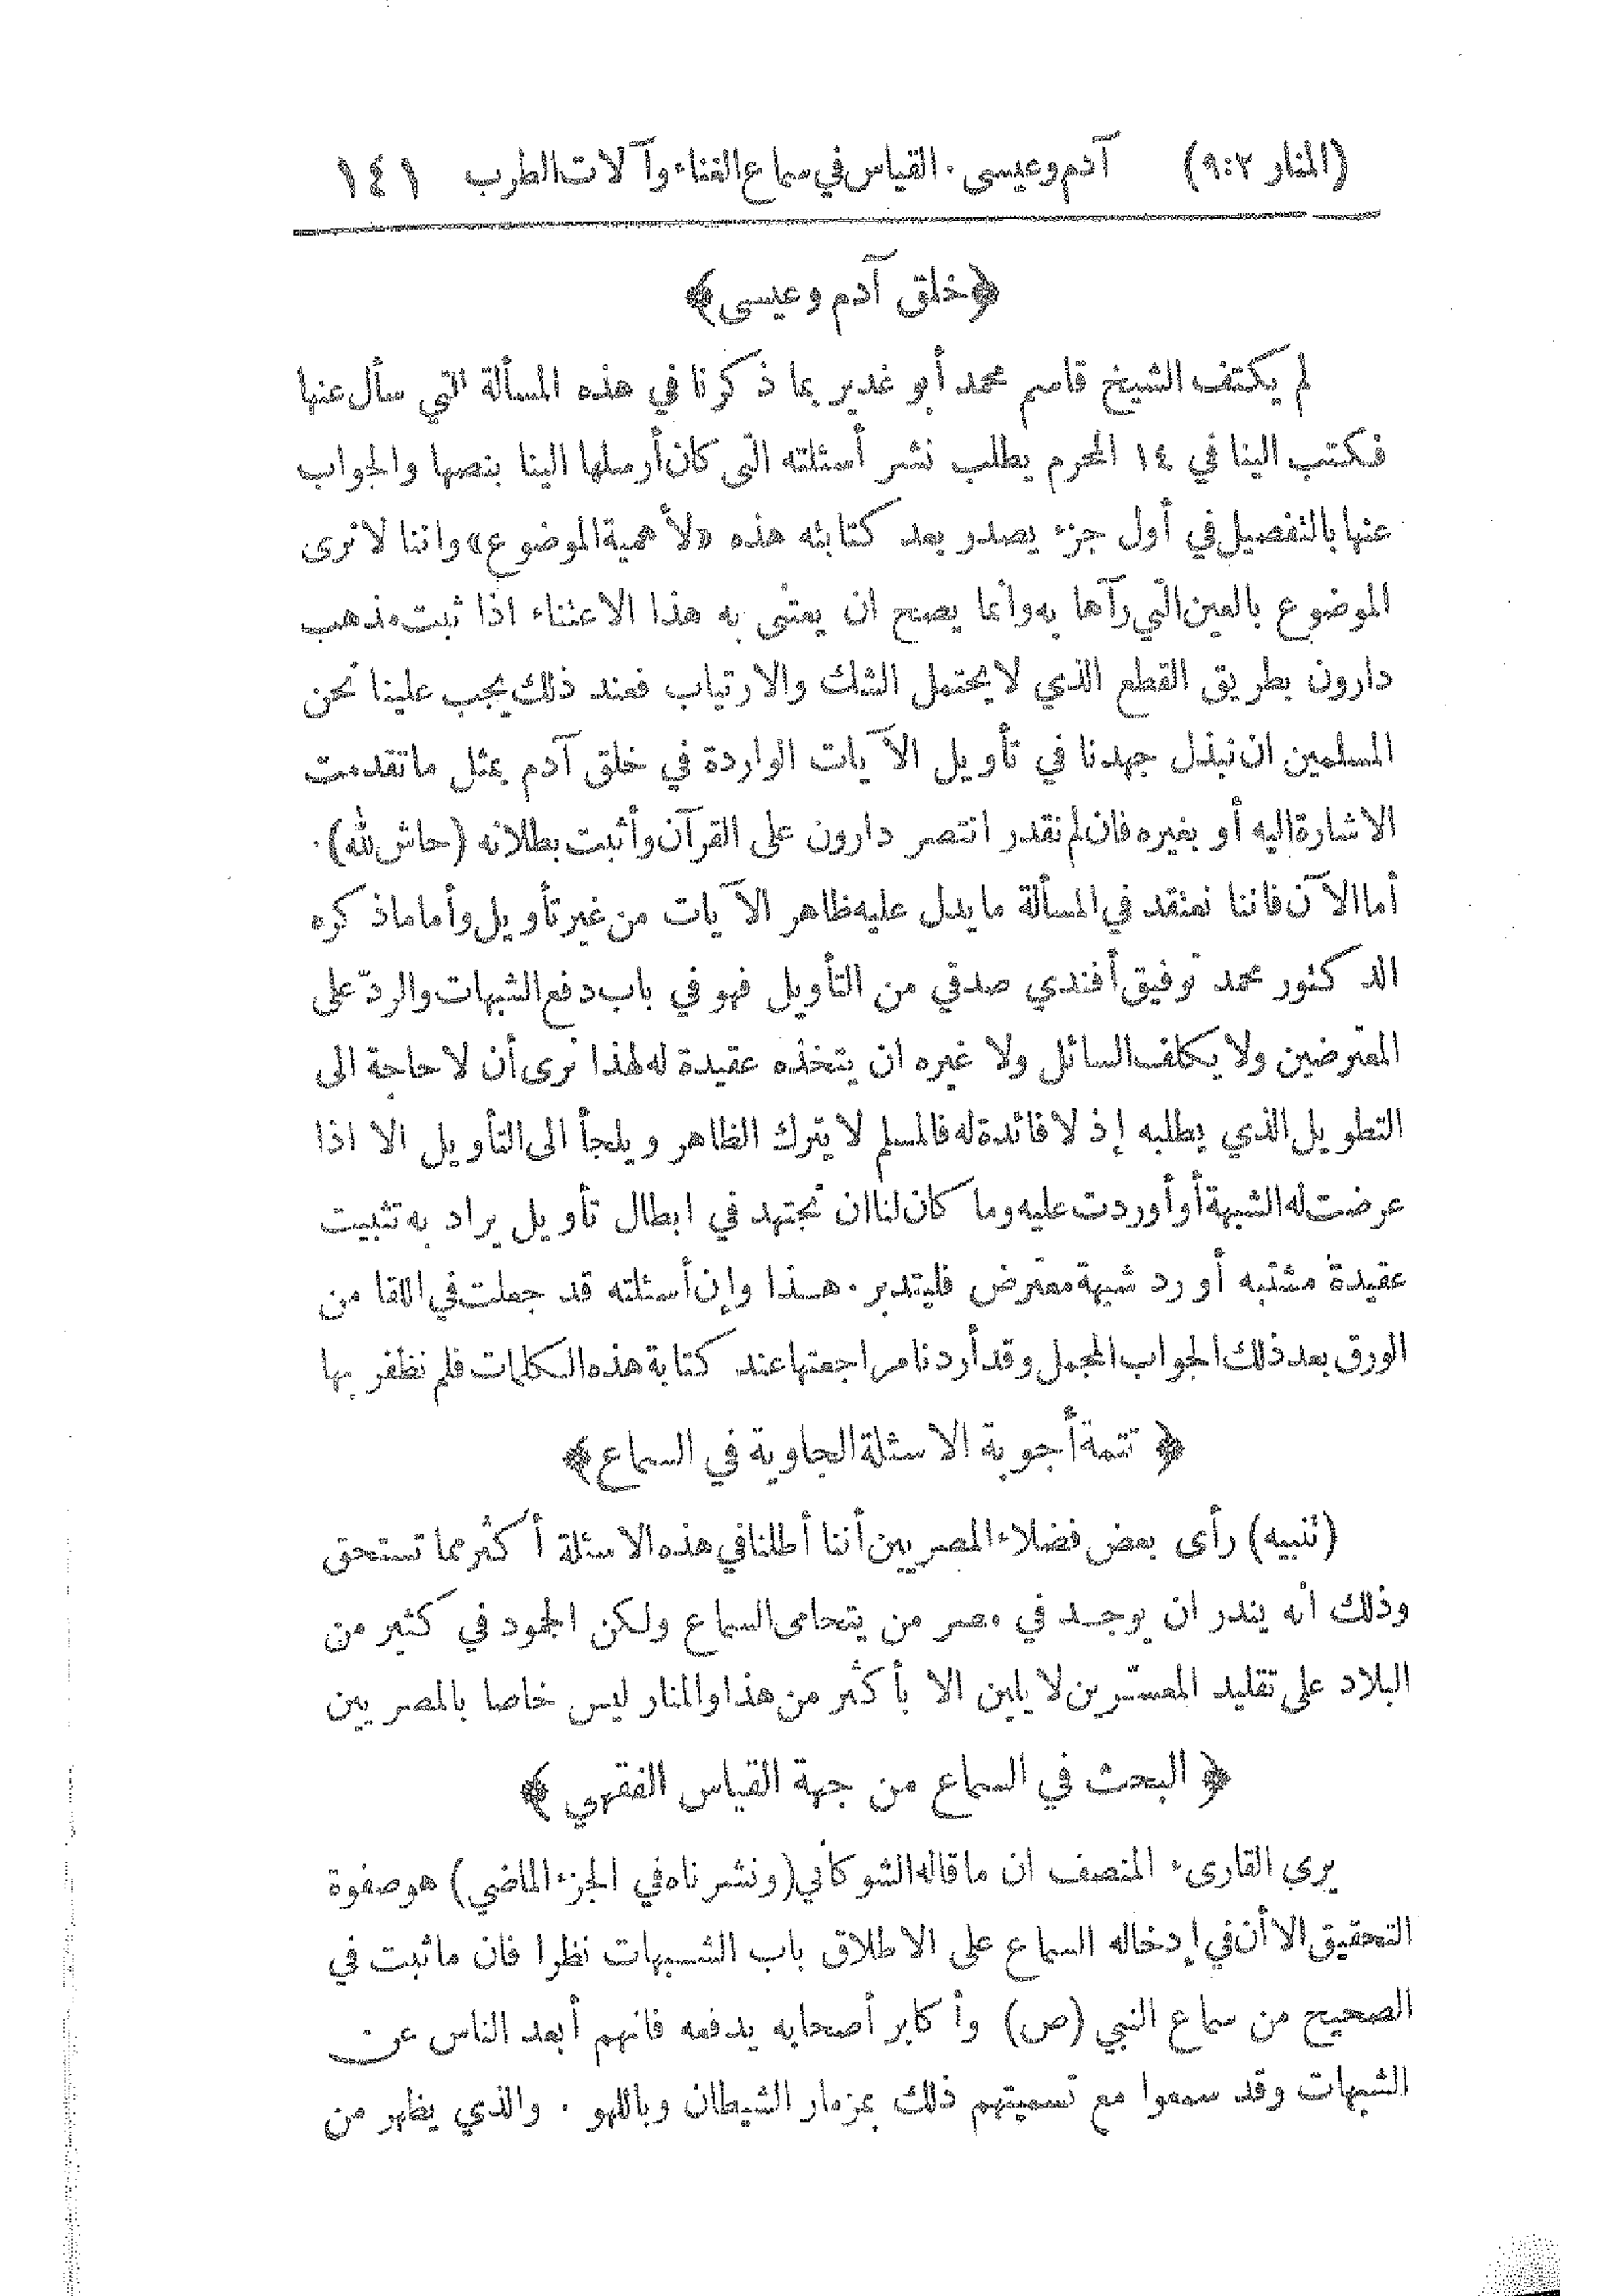 (المنار ٩:٢) آدم وعيسى . القياس في سماع الغناء وآلات الطرب ١٤١
﴿خلق آدم وعيسى﴾
لم يكتف الشيخ قاسم محمد أبو غدير بما ذكرنا في هذه المسألة التي سأل عنها
فكتب الينا في ١٤ المحرم يطلب نشر أسئلته التي كان أرسلها الينا بنصها والجواب
عنها بالتفصيل في أول جزء يصدر بعد كتابته هذه «لأهمية الموضوع» واننا لا نرى
الموضوع بالعين التي رآها به وانما يصح ان يعتنى به هذا الاعتناء اذا ثبت مذهب
دارون بطريق القطع الذي لا يحتمل الشك والارتياب فعند ذلك يجب علينا نحن
المسلمين ان نبذل جهدنا في تأويل الآيات الواردة في خلق آدم بمثل ما تقدمت
الاشارة اليه أو بغيره فان لم نقدر انتصر دارون على القرآن وأثبت بطلانه (حاش لله) .
أما الآن فاننا نعتقد في المسألة ما يدل عليه ظاهر الآيات من غير تأويل وأما ما ذكره
الدكتور محمد توفيق أفندي صدقي من التأويل فهو في باب دفع الشبهات والردّ على
المعترضين ولا يكلف السائل ولا غيره ان يتخذه عقيدة له لهذا نرى أن لا حاجة الى
التطويل الذي يطلبه إذ لا فائدة له فالمسلم لا يترك الظاهر ويلجأ الى التأويل الا اذا
عرضت له الشبهة أو أوردت عليه وما كان لنا ان نجتهد في ابطال تأويل يراد به تثبيت
عقيدة مشتبه أو رد شبهة معترض فليتدبر . هـذا وإن أسئلته قد جعلت في اللقا من
الورق بعد ذلك الجواب المجمل وقد أردنا مراجعتها عند كتابة هذه الكلمات فلم نظفر بها
﴿ تتمة أجوبة الاسئلة الجاوية في السماع ﴾
(تنبيه) رأى بعض فضلاء المصريين أننا أطلنا في هذه الاسئلة أكثر مما تستحق
وذلك أنه يندر ان يوجـد في مصر من يتحامى السماع ولكن الجمود في كثير من
البلاد على تقليد المعسّرين لا يلين الا بأكثر من هذا والمنار ليس خاصا بالمصريين
﴿ البحث في السماع من جهة القياس الفقهي ﴾
يرى القارىء المنصف ان ما قاله الشوكاني (ونشرناه في الجزء الماضي) هو صفوة
التحقيق الا أن في إدخاله السماع على الاطلاق باب الشـبهات نظرا فان ما ثبت في
الصحيح من سماع النبي (ص) وأكابر أصحابه يدفعه فانهم أبعد الناس عن
الشبهات وقد سمعوا مع تسميتهم ذلك بمزمار الشيطان وباللهو . والذي يظهر من